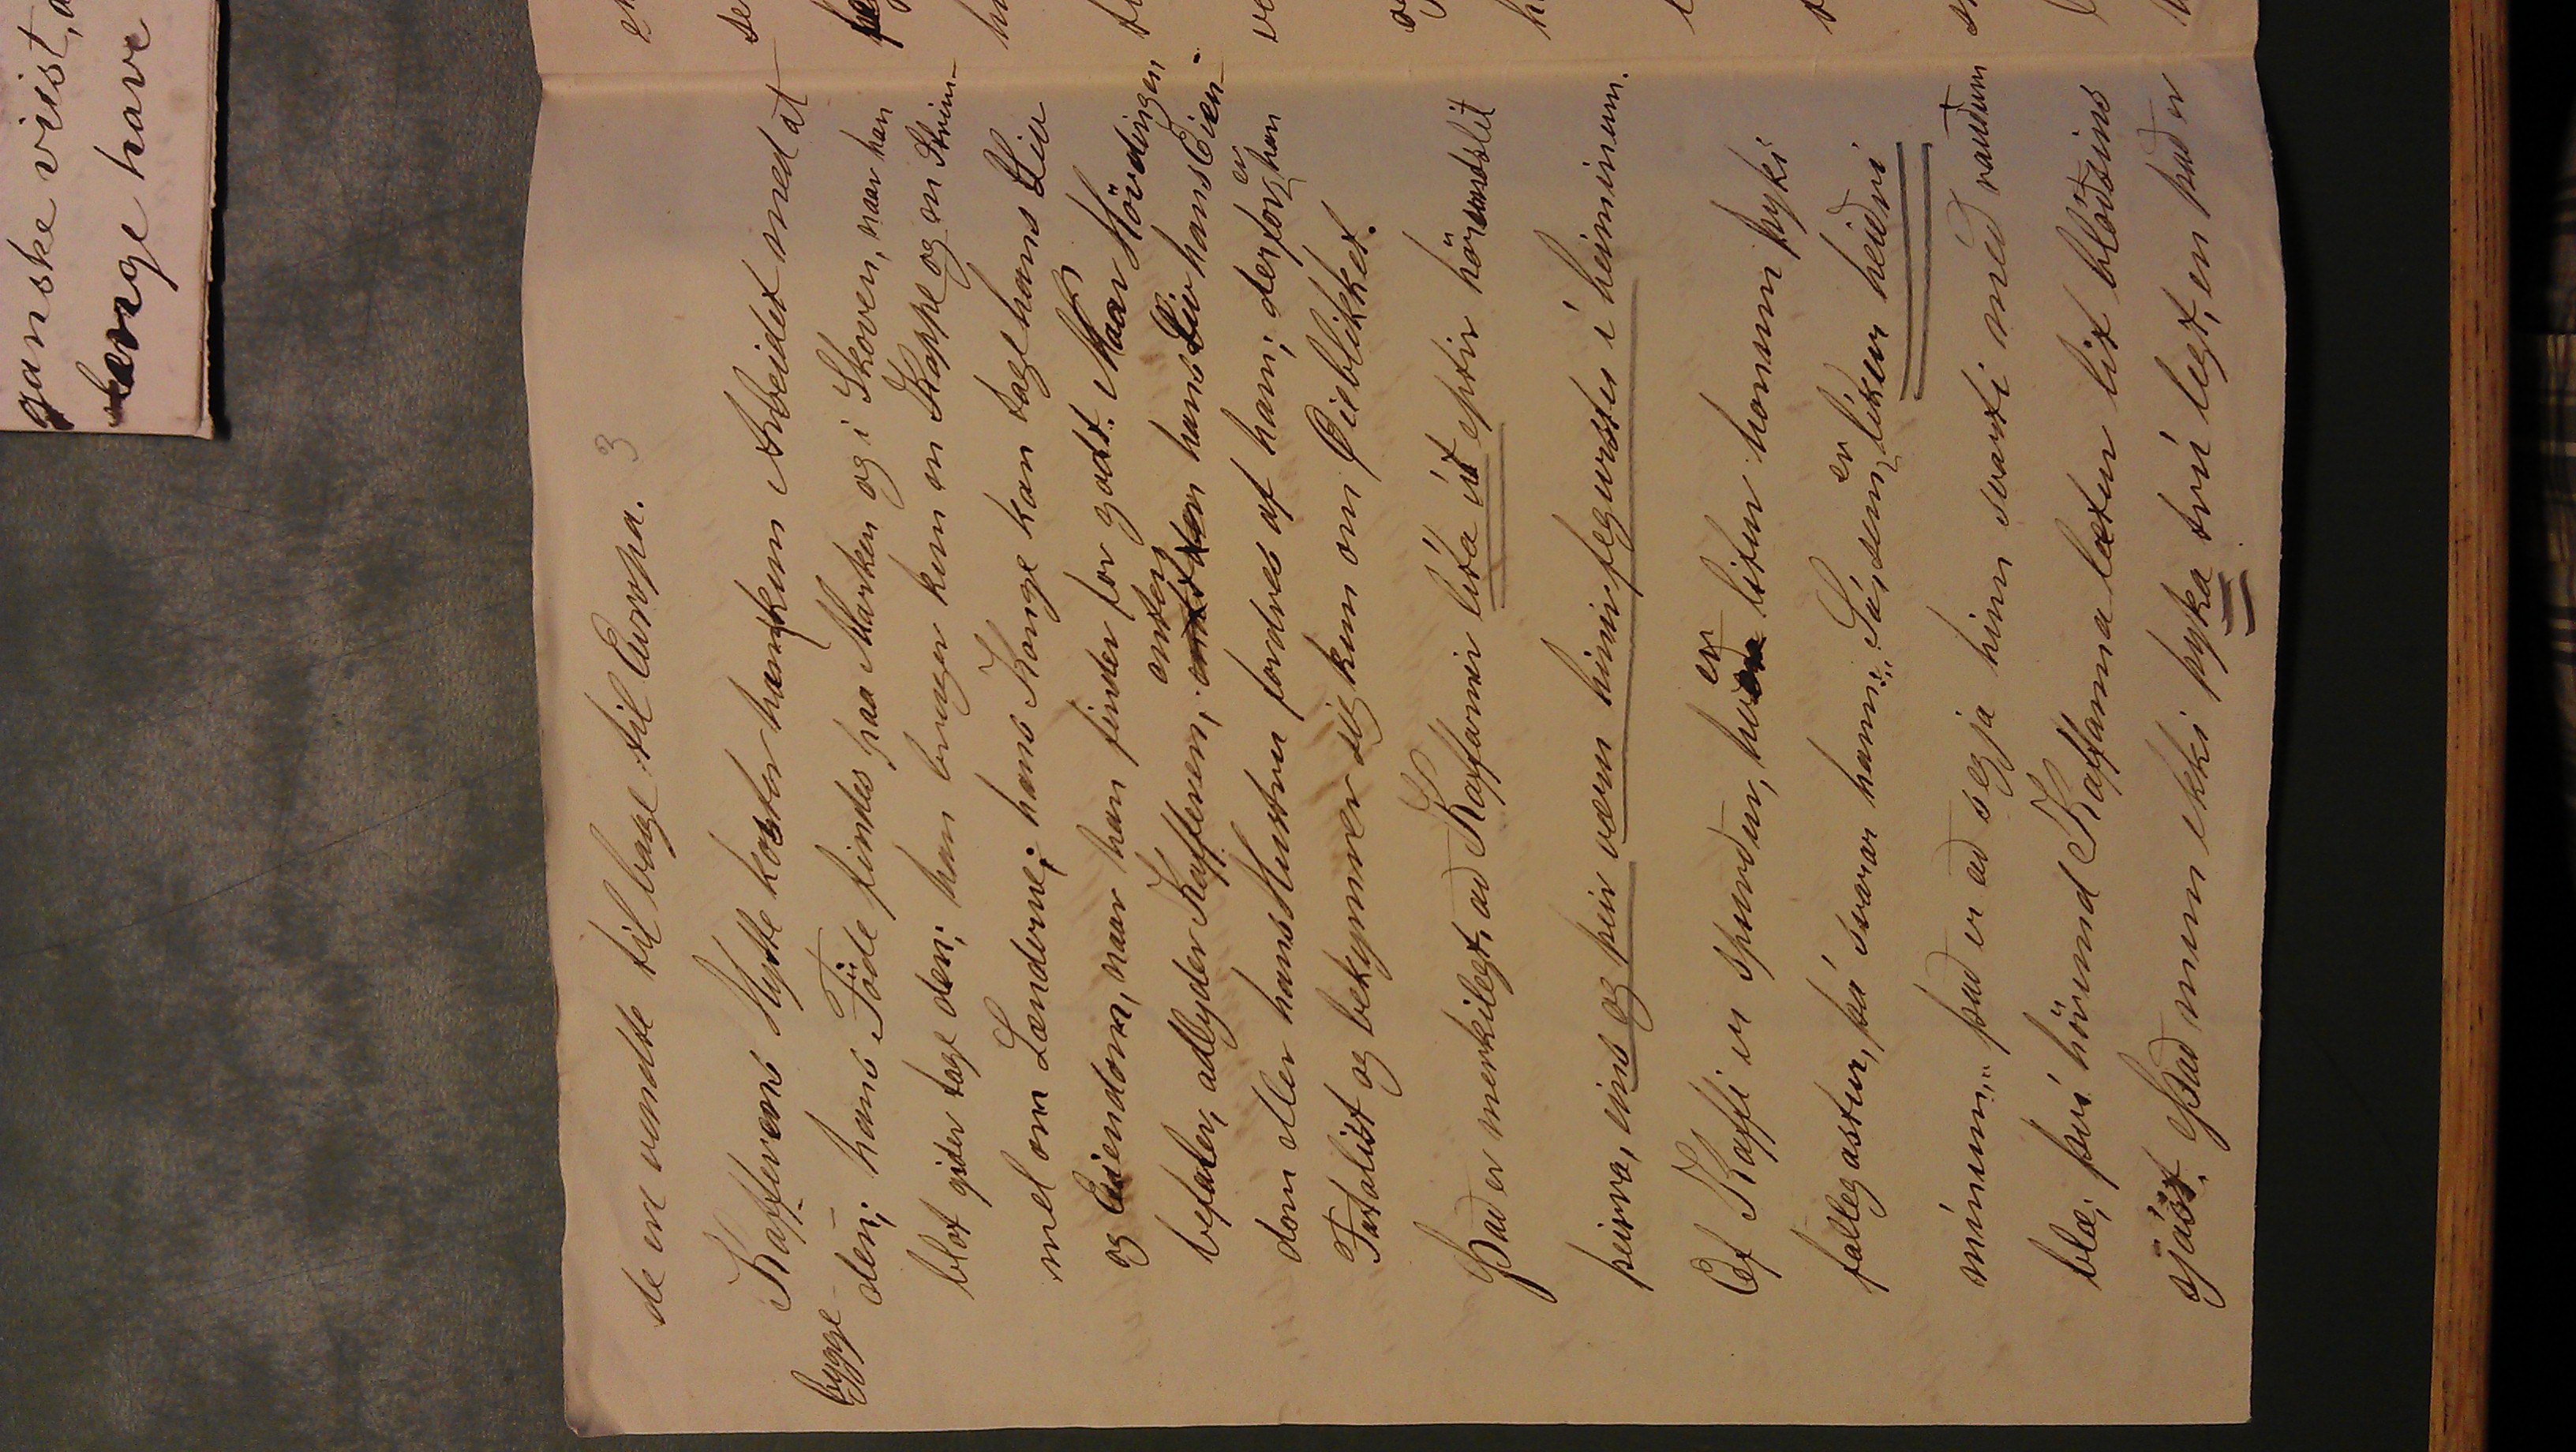 ganske viist, a
længe have
3
de en vendte tilbage til Europa.
Kafferens Hytte koster ham kun Arbeidet med at
bygge
den; hans Föde findes paa Marken og i Skoven, naar han
blot gider tage den; han bruger kun en Kappe og en Strim-
mel om Lænderne; hans Konge kan tage hans Liv
og Eiendom, naar han finder for godt. Naar Hövdingen
befaler, adlyder Kafferen; enten hans Liv hans Eien-
dom eller hans Hustru fordres af ham; derfor er han
Fatalist og bekymrer sig kun om Öieblikket.
Það er merkilegt, að Kaffarnir líta út eptir hörundslit
þeirra, eins og þeir væru himinfegurstir í heiminum.
Ef Kaffi er spurður, hver litur honum þyki
fallegastur, þá svarar hann: „Sá, sem er líkur heiðri
mínum“, það er að segja hinn svarti með rauðum
blæ; því hörund Kaffanna lætur lit blóðsins
sjást. Það mun ekki þyka trúlegt, en það er